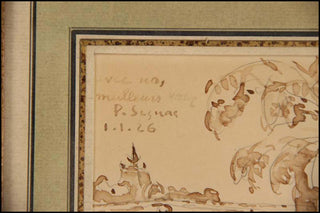 avec nos
meilleurs vœux
P. Signac
1.1.26